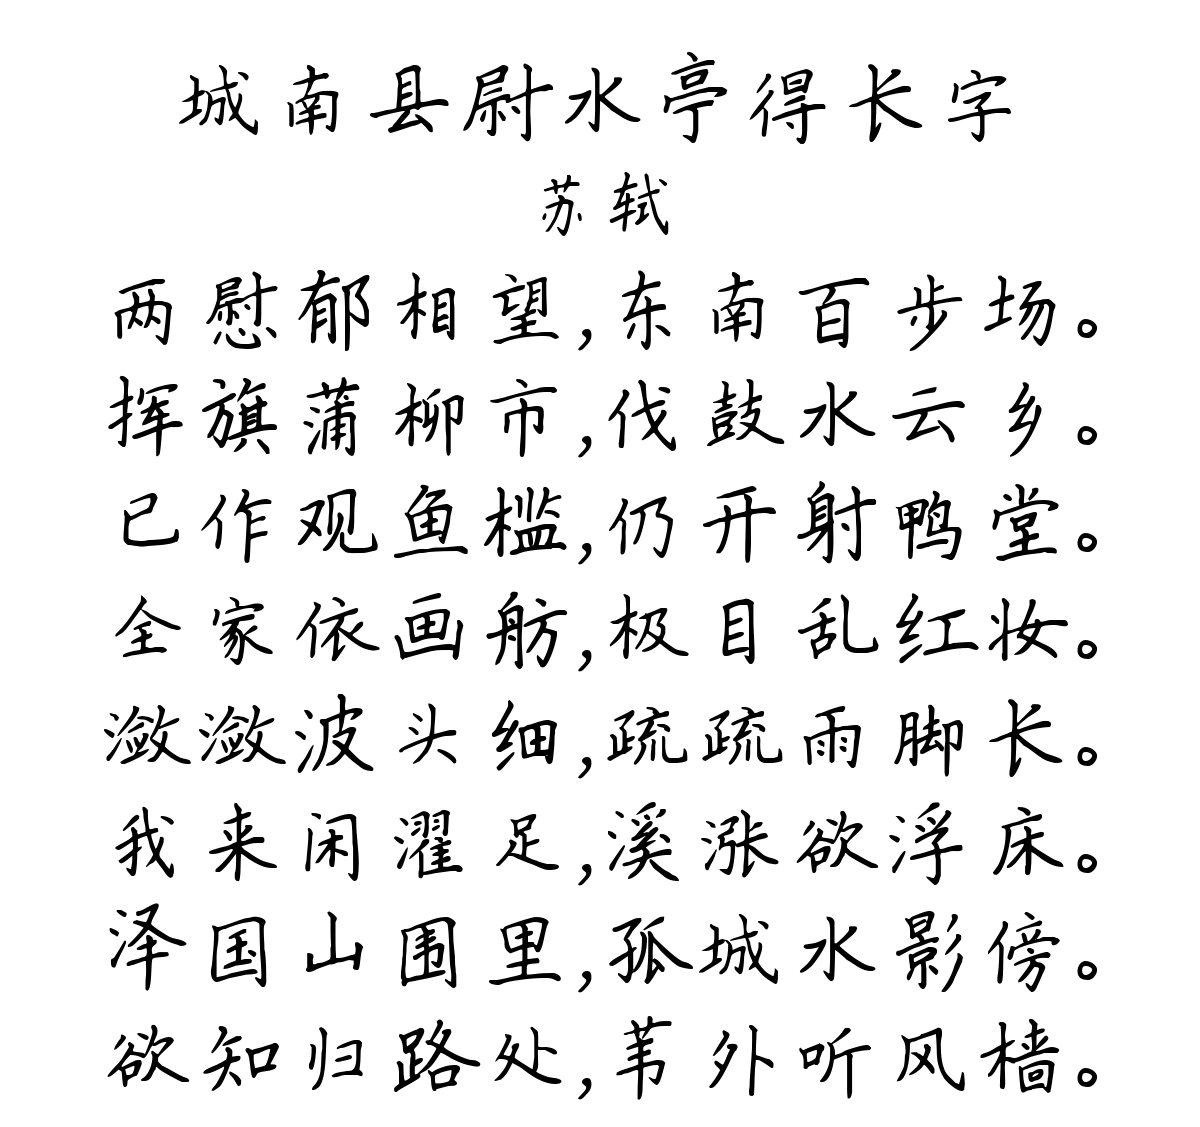 城南县尉水亭得长字
苏轼
两慰郁相望,东南百步场。
挥旗蒲柳市,伐鼓水云乡。
已作观鱼槛,仍开射鸭堂。
全家依画舫,极目乱红妆。
潋潋波头细,疏疏雨脚长。
我来闲濯足,溪涨欲浮床。
泽国山围里,孤城水影傍。
欲知归路处,苇外听风樯。